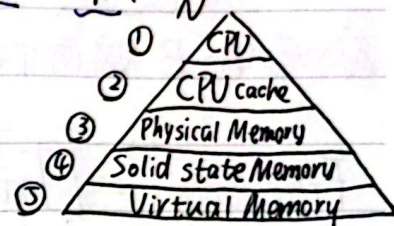 N
① CPU
② CPU cache
③ Physical Memory
④ Solid state Memory
⑤ Virtual Memory